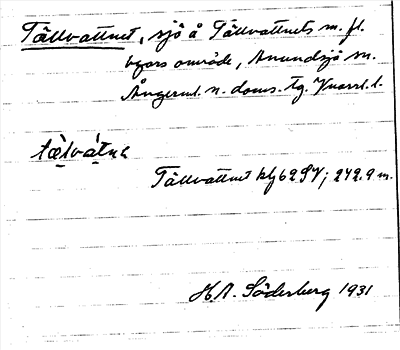 Tällvattnet, sjö å Tällvattnets m. fl.
byars område, Anundsjö sn.
Ångerml. n. doms. tg. Vnorrl. l.
tæ̀lvátnɐ
Tällvattnet blj 62 SV; 242.9 m.
H.A. Söderberg 1931